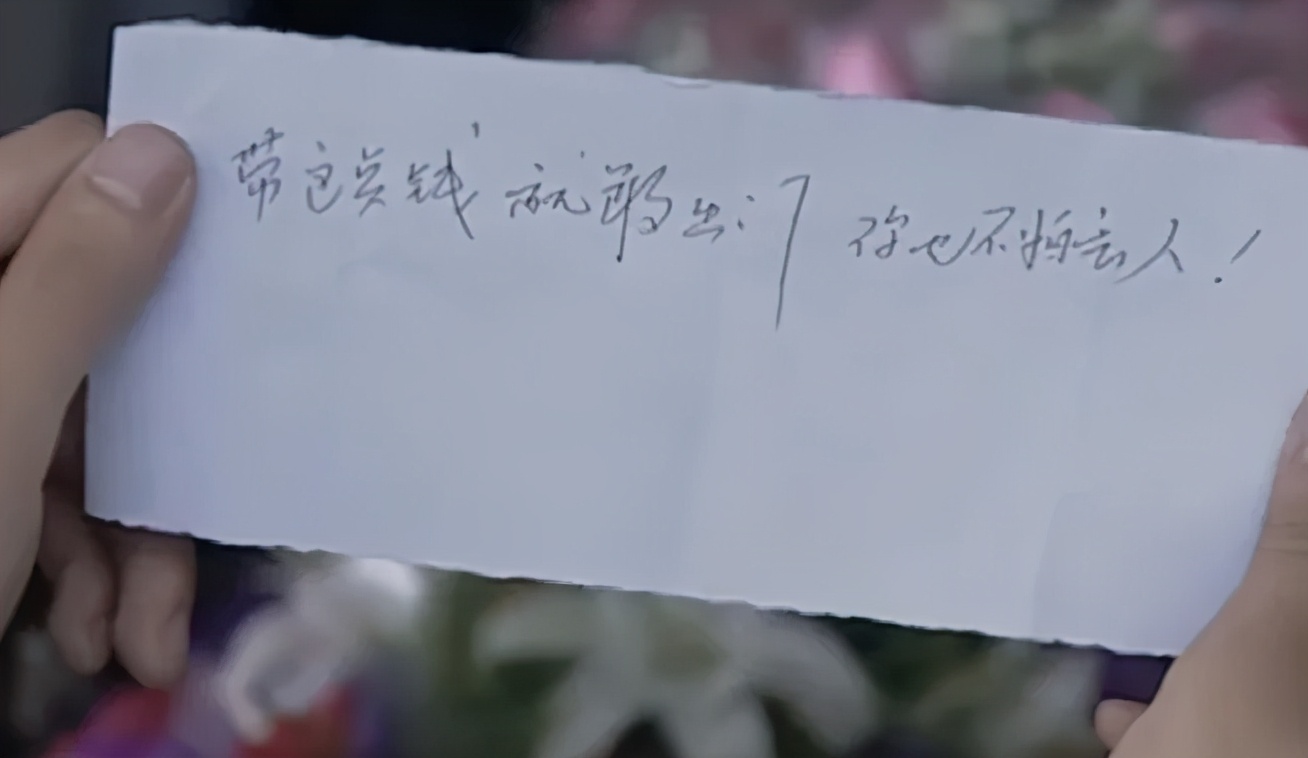 带这点钱 就敢出门 你也不怕丢人!